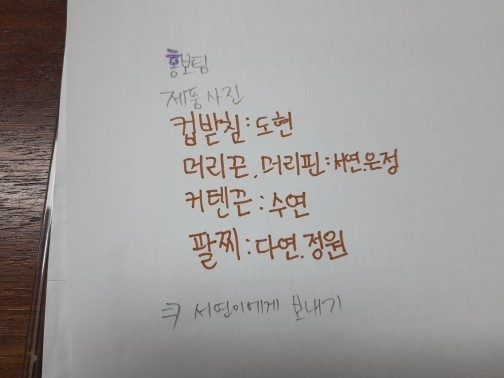 홍보팀
제품사진
컵받침:도현
머리끈, 머리핀:서연.은정
커텐끈:수연
팔찌:다연.정원
서연이에게 보내기